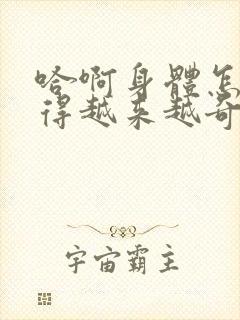 哈啊身體怎
得越来越奇
宇宙霸主